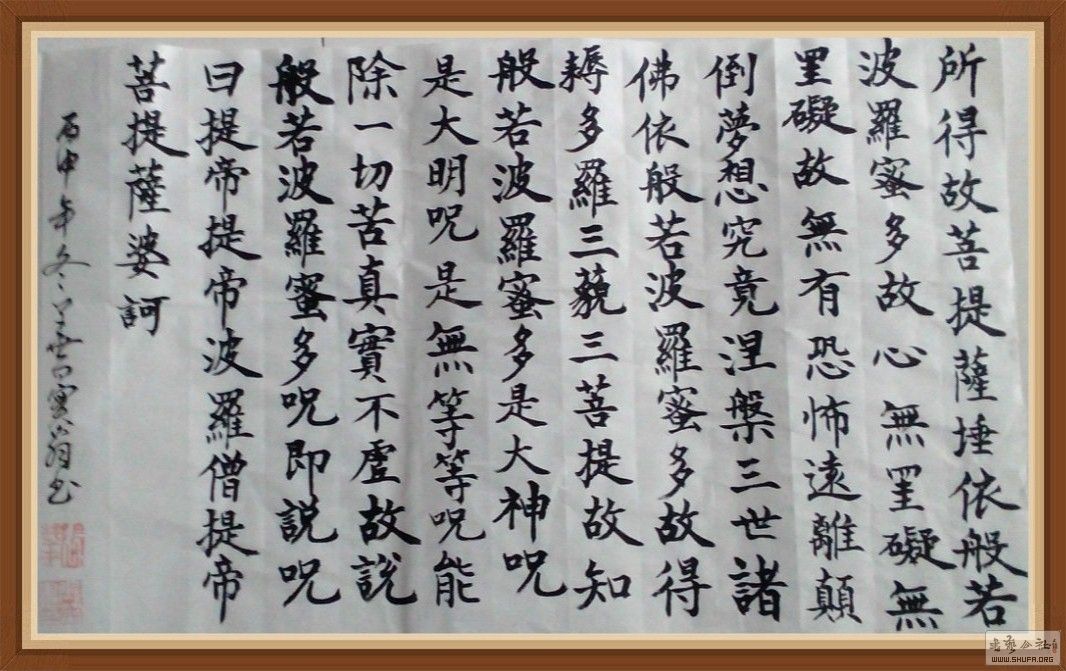 所得故菩提薩埵依般若
波羅蜜多故心無罣礙無
罣礙故無有恐怖遠離顛
倒夢想究竟涅槃三世諸
佛依般若波羅蜜多故得
耨多羅三藐三菩提故知
般若波羅蜜多是大神呪
是大明呪是無等等呪能
除一切苦真實不虛故説
般若波羅蜜多呪即説呪
曰提帝提帝波羅僧提帝
菩提薩婆訶
丙申年冬翁书
WWW.SHUFA.ORG